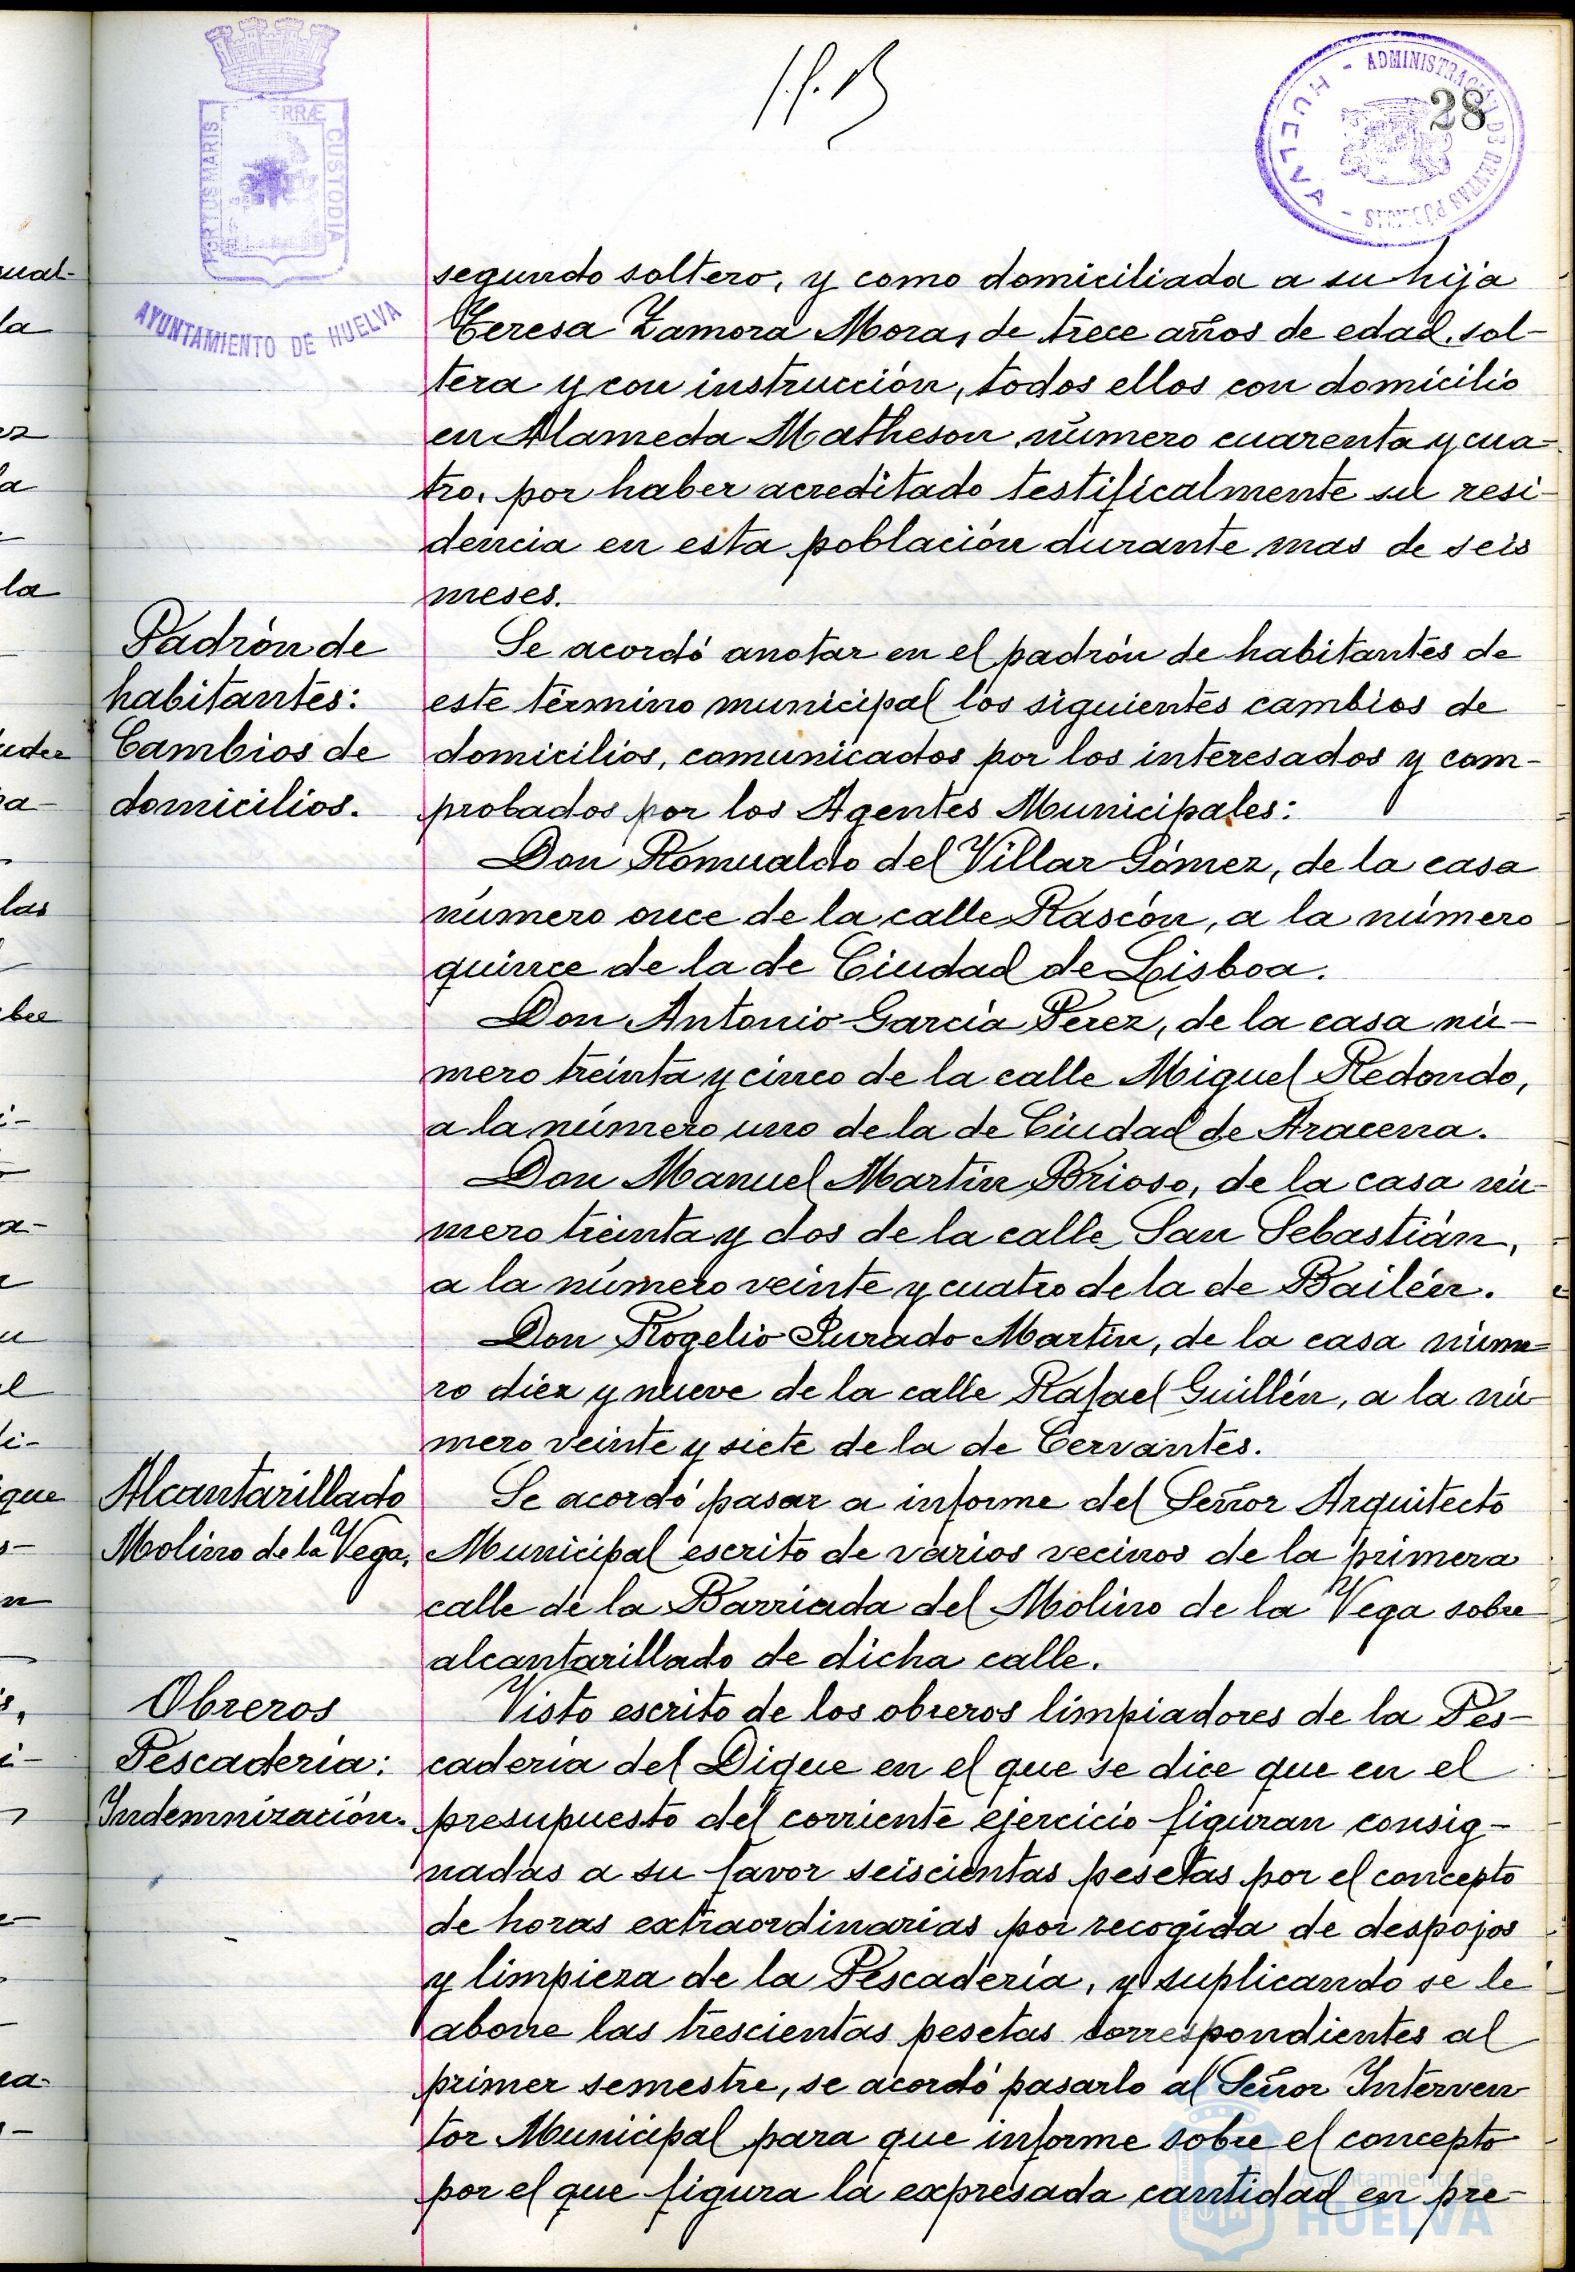 28
ADMINISTRACIÓN DE RENTAS PÚBLICAS - HUELVA -
PORTUS MARIS
TERRÆ CUSTODIA
AYUNTAMIENTO DE HUELVA
segundo soltero, y como domiciliada a su hija
Teresa Zamora Mora, de trece años de edad, sol-
tera y con instrucción, todos ellos con domicilio
en Alameda Matheson número cuarenta y cua-
tro, por haber acreditado testificalmente su resi-
dencia en esta población durante mas de seis
meses.
Padrón de
habitantes:
Cambios de
domicilios.
Se acordó anotar en el padrón de habitantes de
este término municipal los siguientes cambios de
domicilios, comunicados por los interesados y com-
probados por los Agentes Municipales:
Don Romualdo del Villar Gómez, de la casa
número once de la calle Rascón, a la número
quince de la de Ciudad de Lisboa.
Don Antonio García Pérez, de la casa nú-
mero treinta y cinco de la calle Miguel Redondo,
a la número uno de la de Ciudad de Aracena.
Don Manuel Martín Brioso, de la casa nú-
mero treinta y dos de la calle San Sebastián,
a la número veinte y cuatro de la de Bailén.
Don Rogelio Jurado Martín, de la casa núme-
ro diez y nueve de la calle Rafael Guillén, a la nú-
mero veinte y siete de la de Cervantes.
Alcantarillado
Molino de la Vega.
Se acordó pasar a informe del Señor Arquitecto
Municipal escrito de varios vecinos de la primera
calle de la Barriada del Molino de la Vega sobre
alcantarillado de dicha calle.
Obreros
Pescadería:
Indemnización.
Visto escrito de los obreros limpiadores de la Pes-
cadería del Dique en el que se dice que en el
presupuesto del corriente ejercicio figuran consig-
nadas a su favor seiscientas pesetas por el concepto
de horas extraordinarias por recogida de despojos
y limpieza de la Pescadería, y suplicando se le
abone las trescientas pesetas correspondientes al
primer semestre, se acordó pasarlo al Señor Interven
tor Municipal para que informe sobre el concepto
por el que figura la expresada cantidad en pre-
Ayuntamiento de
HUELVA